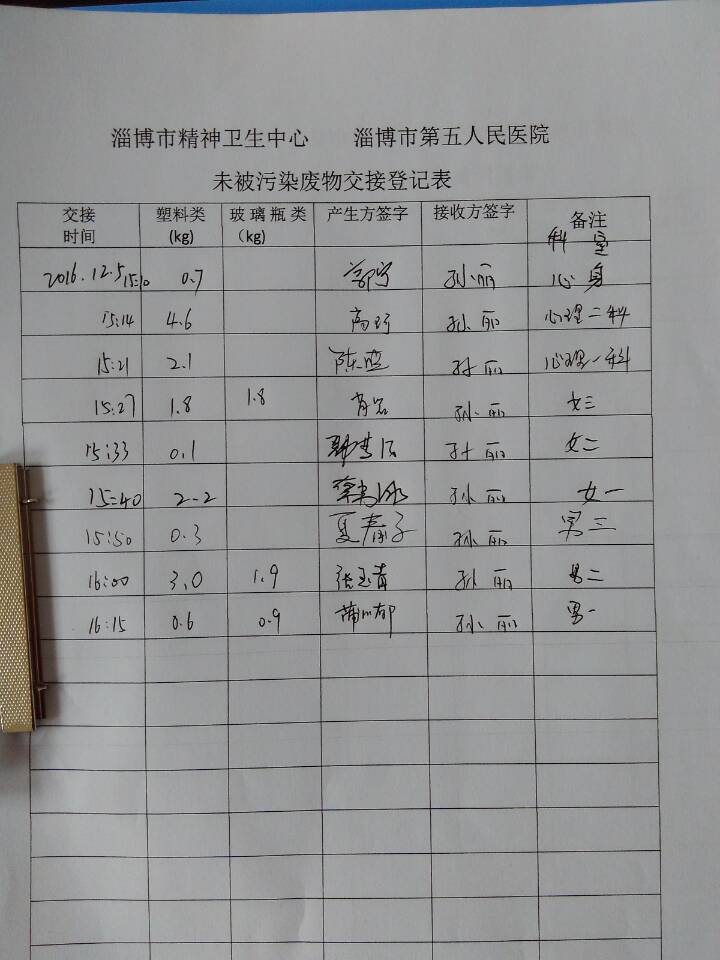 淄博市精神卫生中心 淄博市第五人民医院
未被污染废物交接登记表
交接时间 塑料类(kg) 玻璃瓶类(kg) 产生方签字 接收方签字 备注 科室
2016.12.5 15:10 0.7 孙丽 心身
15:14 4.6 孙丽 心理二科
15:21 2.1 孙丽 心理一科
15:27 1.8 1.8 孙丽 女三
15:33 0.1 孙丽 女二
15:40 2.2 孙丽 女一
15:50 0.3 夏春子 孙丽 男三
16:00 3.0 1.9 张玉青 孙丽 男二
16:15 0.6 0.9 孙丽 男一